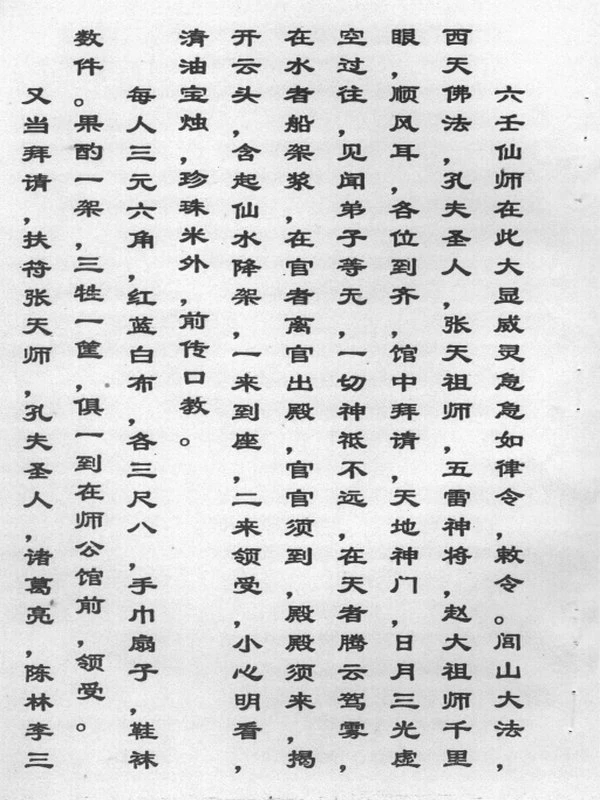 六壬仙师在此大显威灵急急如律令，敕令。闾山大法，
西天佛法，孔夫圣人，张天祖师，五雷神将，赵大祖师千里
眼，顺风耳，各位到齐，馆中拜请，天地神门，日月三光虚
空过往，见闻弟子等无，一切神祇不远，在天者腾云驾雾，
在水者船架浆，在官者离官出殿，官官须到，殿殿须来，揭
开云头，含起仙水降架，一来到座，二来领受，小心明看，
清油宝烛，珍珠米外，前传口教。
每人三元六角，红蓝白布，各三尺八，手巾扇子，鞋袜
数件。果酌一架，三牲一筐，俱一到在师公馆前，领受。
又当拜请，扶符张天师，孔夫圣人，诸葛亮，陈林李三